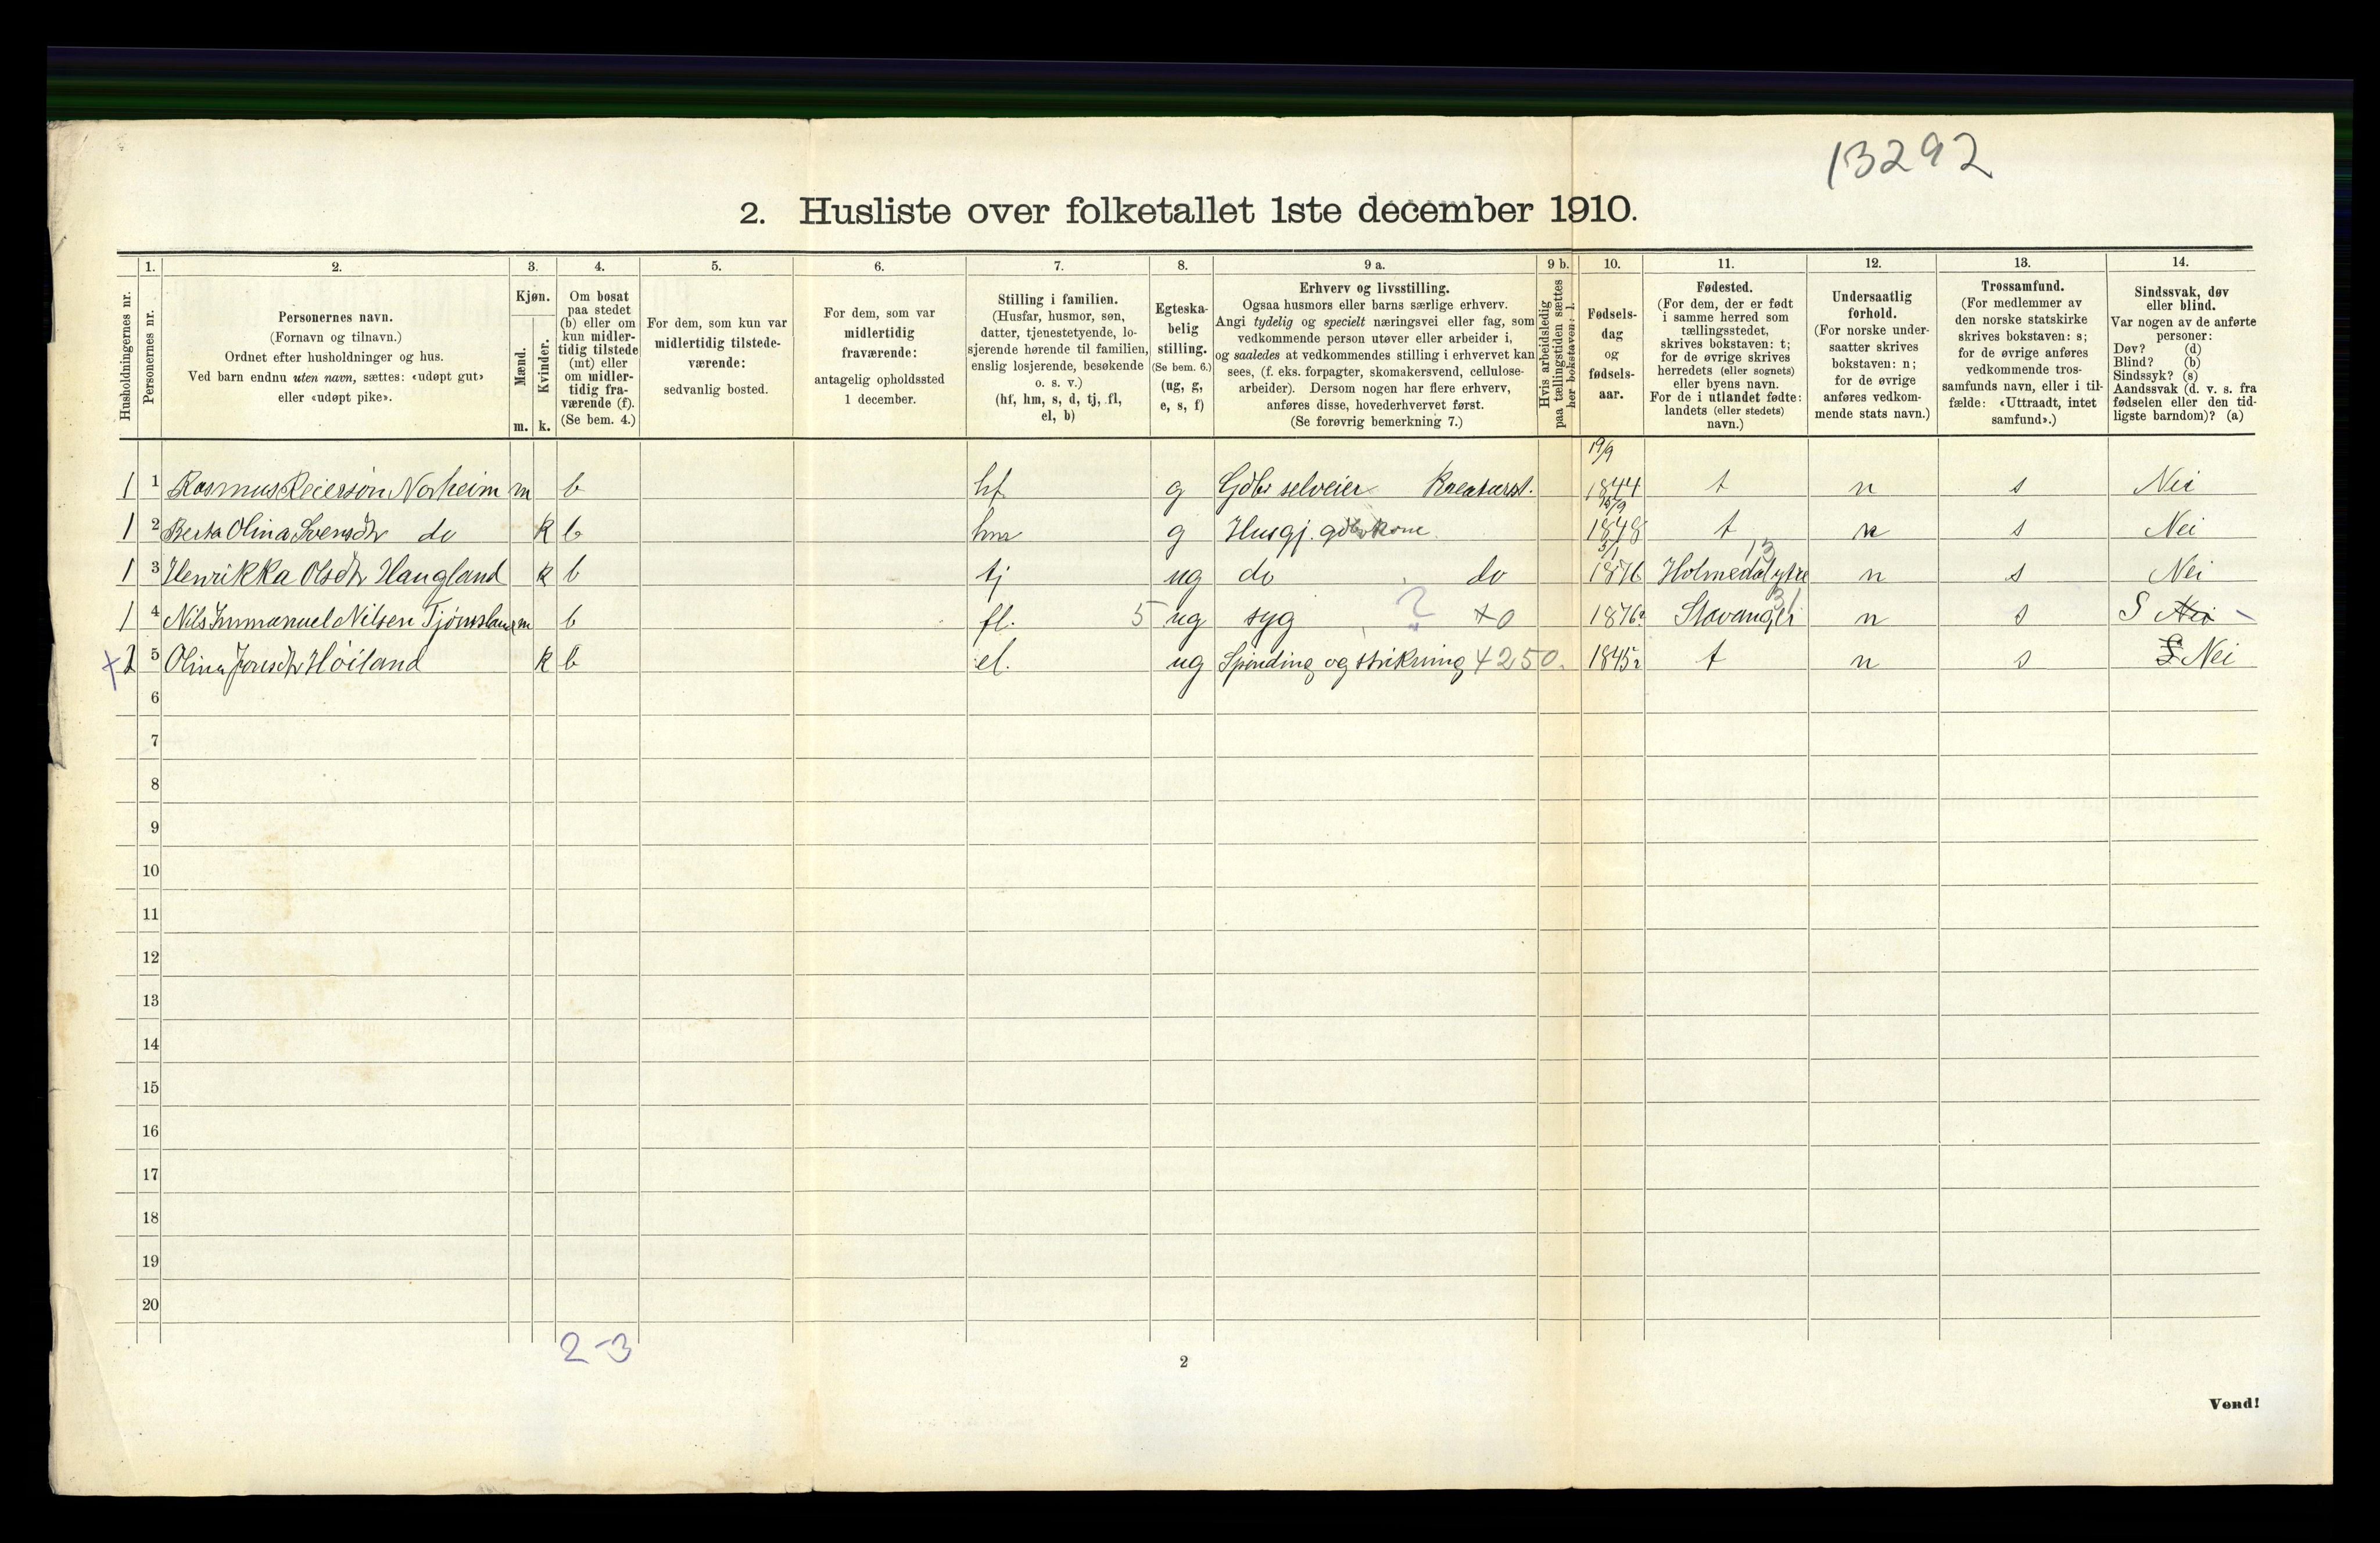 13292
2. Husliste over folketallet 1ste december 1910.
Husholdningernes nr.
1.
Personernes nr.
2.
Personernes navn.
(Fornavn og tilnavn.)
Ordnet efter husholdninger og hus.
Ved barn endnu uten navn, sættes: «udøpt gut»
eller «udøpt pike».
3.
Kjøn.
Mænd.
Kvinder.
m. k.
4.
Om bosat
paa stedet
(b) eller om
kun midler-
tidig tilstede
(mt) eller
om midler-
tidig fra-
værende (f).
(Se bem. 4.)
5.
For dem, som kun var
midlertidig tilstede-
værende:
sedvanlig bosted.
6.
For dem, som var
midlertidig
fraværende:
antagelig opholdssted
1 december.
7.
Stilling i familien.
(Husfar, husmor, søn,
datter, tjenestetyende, lo-
sjerende hørende til familien,
enslig losjerende, besøkende
o. s. v.)
(hf, hm, s, d, tj, fl,
el, b)
8.
Egteska-
belig
stilling.
(Se bem. 6.)
(ug, g,
e, s, f)
9 a.
Erhverv og livsstilling.
Ogsaa husmors eller barns særlige erhverv.
Angi tydelig og specielt næringsvei eller fag, som
vedkommende person utøver eller arbeider i,
og saaledes at vedkommendes stilling i erhvervet kan
sees, (f. eks. forpagter, skomakersvend, cellulose-
arbeider). Dersom nogen har flere erhverv,
anføres disse, hovederhvervet først.
(Se forøvrig bemerkning 7.)
9 b.
Hvis arbeidsledig
paa tællingstiden sættes
her bokstaven: l.
10.
Fødsels-
dag
og
fødsels-
aar.
11.
Fødested.
(For dem, der er født
i samme herred som
tællingsstedet,
skrives bokstaven: t;
for de øvrige skrives
herredets (eller sognets)
eller byens navn.
For de i utlandet fødte:
landets (eller stedets)
navn.)
12.
Undersaatlig
forhold.
(For norske under-
saatter skrives
bokstaven: n;
for de øvrige
anføres vedkom-
mende stats navn.)
13.
Trossamfund.
(For medlemmer av
den norske statskirke
skrives bokstaven: s;
for de øvrige anføres
vedkommende tros-
samfunds navn, eller i til-
fælde: «Uttraadt, intet
samfund».)
14.
Sindssvak, døv
eller blind.
Var nogen av de anførte
personer:
Døv? (d)
Blind? (b)
Sindssyk? (s)
Aandssvak (d. v. s. fra
fødselen eller den tid-
ligste barndom)? (a)
19/9
1 1 Rasmus Reierson Norheim m b hf g Gdbr selveier Kreaturst. 1844 t n s Nei
1 2 Berta Olina Svensdtr do k b hm g Husgj. gdbr kone 1848 t n s Nei
5/1 13
1 3 Henrikka Olsdtr Haugland k b tj ug do do 1876 Holmedal ytre n s Nei
? 31
1 4 Nils Immanuel Nilsen Tjømsland m b fl. 5 ug syg +0 1876 Stavanger n s S Nei
+ 2 5 Olina Jonsdtr Höiland k b el. ug Spinding og strikning 4250. 1845 t n s Nei
6
7
8
9
10
11
12
13
14
15
16
17
18
19
20
2-3
2
Vend!